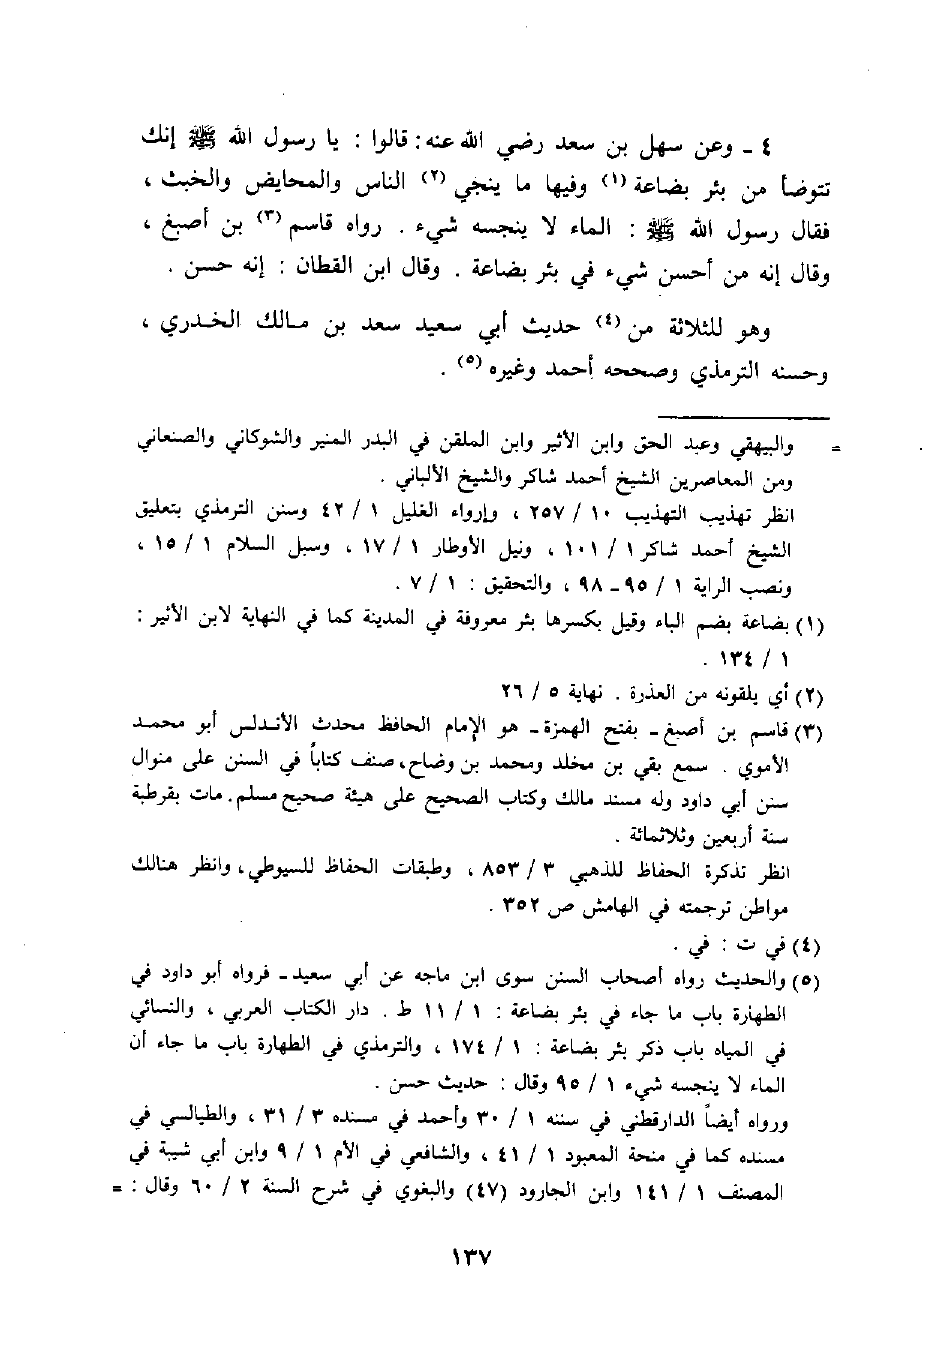 ٤ ـ وعن سهل بن سعد رضي الله عنه : قالوا : يا رسول الله ﷺ إنك
تتوضأ من بئر بضاعة (١) وفيها ما ينجي (٢) الناس والمحايض والخبث ،
فقال رسول الله ﷺ : الماء لا ينجسه شيء . رواه قاسم (٣) بن أصبغ ،
وقال إنه من أحسن شيء في بئر بضاعة . وقال ابن القطان : إنه حسن .
وهو للثلاثة من (٤) حديث أبي سعيد سعد بن مالك الخدري ،
وحسنه الترمذي وصححه أحمد وغيره (٥) .
= والبيهقي وعبد الحق وابن الأثير وابن الملقن في البدر المنير والشوكاني والصنعاني
ومن المعاصرين الشيخ أحمد شاكر والشيخ الألباني .
انظر تهذيب التهذيب ١٠ / ٢٥٧ ، وإرواء الغليل ١ / ٤٢ وسنن الترمذي بتعليق
الشيخ أحمد شاكر ١ / ١٠١ ، ونيل الأوطار ١ / ١٧ ، وسبل السلام ١ / ١٥ ،
ونصب الراية ١ / ٩٥ ـ ٩٨ ، والتحقيق : ١ / ٧ .
(١) بضاعة بضم الباء وقيل بكسرها بئر معروفة في المدينة كما في النهاية لابن الأثير :
١ / ١٣٤ .
(٢) أي يلقونه من العذرة . نهاية ٥ / ٢٦
(٣) قاسم بن أصبغ ـ بفتح الهمزة ـ هو الإمام الحافظ محدث الأندلس أبو محمد
الأموي . سمع بقي بن مخلد ومحمد بن وضاح ، صنف كتاباً في السنن على منوال
سنن أبي داود وله مسند مالك وكتاب الصحيح على هيئة صحيح مسلم . مات بقرطبة
سنة أربعين وثلاثمائة .
انظر تذكرة الحفاظ للذهبي ٣ / ٨٥٣ ، وطبقات الحفاظ للسيوطي ، وانظر هنالك
مواطن ترجمته في الهامش ص ٣٥٢ .
(٤) في ت : في .
(٥) والحديث رواه أصحاب السنن سوى ابن ماجه عن أبي سعيد ـ فرواه أبو داود في
الطهارة باب ما جاء في بئر بضاعة : ١ / ١١ ط . دار الكتاب العربي ، والنسائي
في المياه باب ذكر بئر بضاعة : ١ / ١٧٤ ، والترمذي في الطهارة باب ما جاء أن
الماء لا ينجسه شيء ١ / ٩٥ وقال : حديث حسن .
ورواه أيضاً الدارقطني في سننه ١ / ٣٠ وأحمد في مسنده ٣ / ٣١ ، والطيالسي في
مسنده كما في منحة المعبود ١ / ٤١ ، والشافعي في الأم ١ / ٩ وابن أبي شيبة في
المصنف ١ / ١٤١ وابن الجارود (٤٧) والبغوي في شرح السنة ٢ / ٦٠ وقال : =
١٣٧